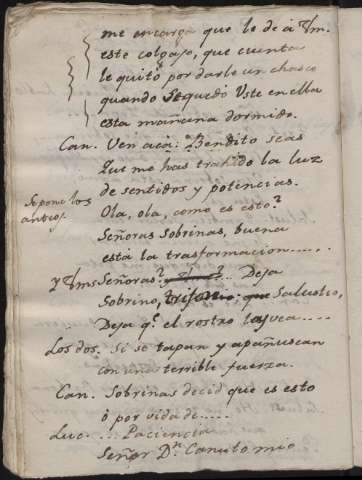 me encarga que le dé à Vm.
este colgajo, que cuenta
le quitò por darle un chasco
quando se quedò Uste en ella
esta mañana dormido.
Can. Ven acà: Bendito seas
Que me has trahido la luz
de sentidos y potencias.
Se pone los anteoj.
Ola, ola, como es esto?
Señoras Sobrinas, buena
està la trasformacion.....
Señoras? ... Deja
Sobrino, Salustio,
Deja q.e el rostro las vea....
Los dos. Si se tapan y apañuscan
con una terrible fuerza.
Can. Sobrinas decid que es esto
ò por vida de.....
Luc. ... Paciencia
Señor D.n Canuto mio